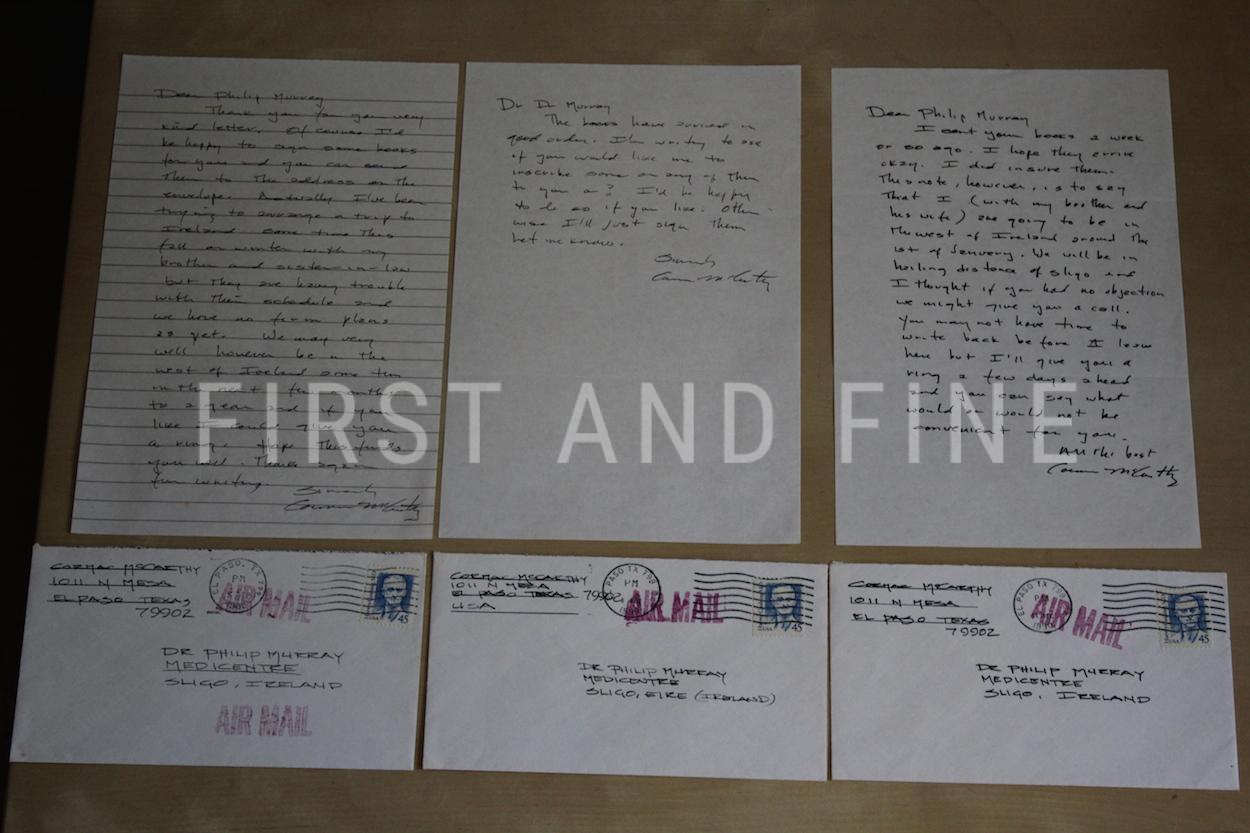 Dear Philip Murray
Thank you for your very
kind letter. Of course I'd
be happy to sign some books
for you and you can send
them to the address on the
envelope. Actually I've been
trying to arrange a trip to
Ireland some time this
fall or winter with my
brother and sister-in-law
but they are having trouble
with their schedule and
we have no firm plans
as yet. We may very
well however be in the
west of Ireland some time
in the next few months
to a year and if you
like I could give you
a ring. Hope this finds
you well. Thanks again
for writing.
Sincerely
Cormac McCarthy
Dr Dr Murray
The books have arrived in
good order. I'm writing to see
if you would like me to
inscribe some or any of them
to you or? I'd be happy
to do so if you like. Other-
wise I'll just sign them
Let me know.
Sincerely
Cormac McCarthy
Dear Philip Murray
I sent your books a week
or so ago. I hope they arrive
okay. I did insure them.
This note, however, is to say
that I (with my brother and
his wife) are going to be in
the west of Ireland around the
1st of January. We will be in
hailing distance of Sligo and
I thought if you had no objection
we might give you a call.
You may not have time to
write back before I leave
here but I'll give you a
ring a few days ahead
and you can say what
would or would not be
convenient for you.
All the best
Cormac McCarthy
FIRST AND FINE
CORMAC MCCARTHY
1011 N MESA
EL PASO, TEXAS
79902
EL PASO, TX 799
PM
AIR MAIL
USA 45
DR PHILIP MURRAY
MEDICENTRE
SLIGO, IRELAND
AIR MAIL
CORMAC MCCARTHY
1011 N MESA
EL PASO TEXAS 79902
USA
PASO TX 799
PM
AIR MAIL
45
DR PHILIP MURRAY
MEDICENTRE
SLIGO, EIRE (IRELAND)
CORMAC MCCARTHY
1011 N MESA
EL PASO TEXAS
79902
EL PASO TX 799
AIR MAIL
45
DR PHILIP MURRAY
MEDICENTRE
SLIGO, IRELAND